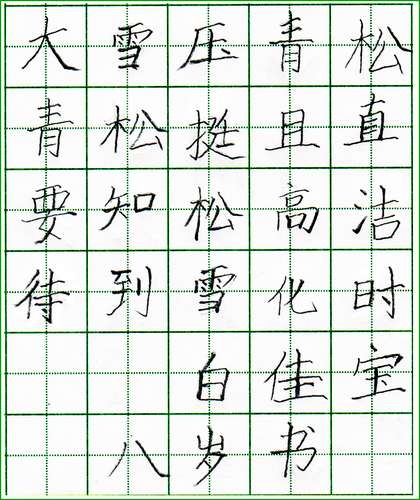 大雪压青松
青松挺且直
要知松高洁
待到雪化时
白佳宝
八岁书